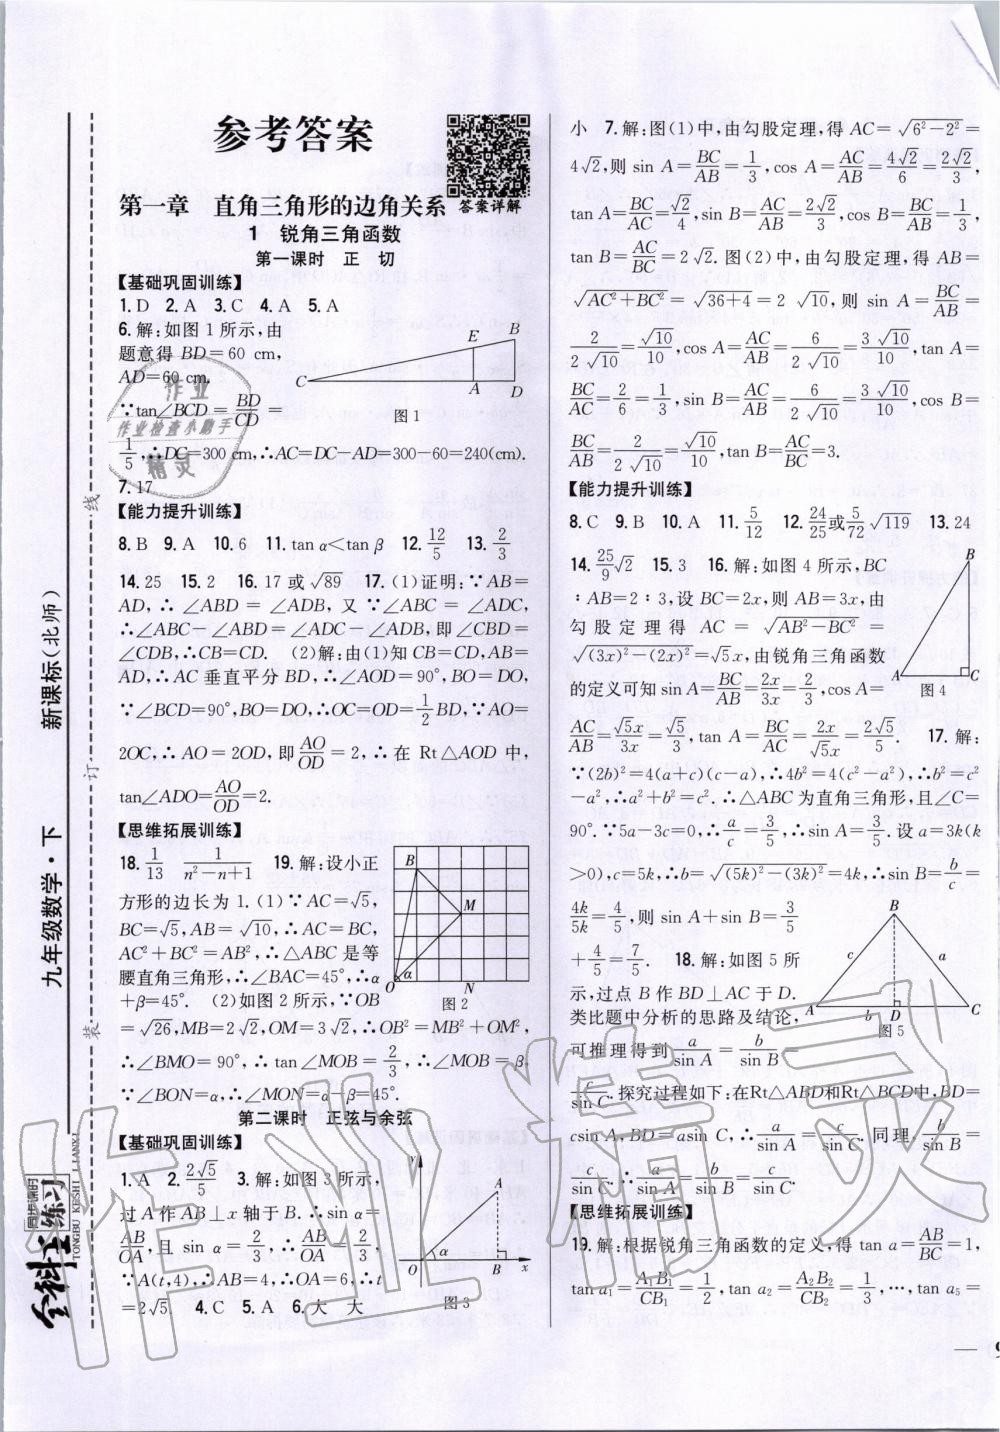 参考答案
答案详解
第一章 直角三角形的边角关系
1 锐角三角函数
第一课时 正 切
【基础巩固训练】
1. D 2. A 3. C 4. A 5. A
6. 解:如图1所示,由
题意得 BD=60 cm,
AD=60 cm.
∵tan∠BCD=BD/CD=
1/5,∴DC=300 cm,∴AC=DC-AD=300-60=240(cm).
7. 17
图1
【能力提升训练】
8. B 9. A 10. 6 11. tan α<tan β 12. 12/5 13. 2/3
14. 25 15. 2 16. 17或√89 17. (1)证明:∵AB=
AD,∴∠ABD=∠ADB,又∵∠ABC=∠ADC,
∴∠ABC-∠ABD=∠ADC-∠ADB,即∠CBD=
∠CDB,∴CB=CD. (2)解:由(1)知CB=CD,AB=
AD,∴AC垂直平分BD,∴∠AOD=90°,BO=DO,
∵∠BCD=90°,BO=DO,∴OC=OD=1/2 BD,∵AO=
2OC,∴AO=2OD,即AO/OD=2,∴在Rt△AOD中,
tan∠ADO=AO/OD=2.
【思维拓展训练】
18. 1/13 1/(n²-n+1) 19. 解:设小正
方形的边长为1.(1)∵AC=√5,
BC=√5,AB=√10,∴AC=BC,
AC²+BC²=AB²,∴△ABC是等
腰直角三角形,∴∠BAC=45°,∴α
+β=45°. (2)如图2所示,∵OB
=√26,MB=2√2,OM=3√2,∴OB²=MB²+OM²,
∴∠BMO=90°,∴tan∠MOB=2/3,∴∠MOB=β.
∵∠BON=α,∴∠MON=α-β=45°.
图2
第二课时 正弦与余弦
【基础巩固训练】
1. A 2. 2√5/5 3. 解:如图3所示,
过A作AB⊥x轴于B.∴sin α=
AB/OA,且sin α=2/3,∴AB/OA=2/3,
∵A(t,4),∴AB=4,∴OA=6,∴t
=2√5. 4. C 5. A 6. 大 大
图3
小 7. 解:图(1)中,由勾股定理,得AC=√(6²-2²)=
4√2,则sin A=BC/AB=1/3,cos A=AC/AB=4√2/6=2√2/3,
tan A=BC/AC=√2/4,sin B=AC/AB=2√2/3,cos B=BC/AB=1/3,
tan B=AC/BC=2√2. 图(2)中,由勾股定理,得AB=
√(AC²+BC²)=√(36+4)=2√10,则sin A=BC/AB=
2/(2√10)=√10/10,cos A=AC/AB=6/(2√10)=3√10/10,tan A=
BC/AC=2/6=1/3,sin B=AC/AB=6/(2√10)=3√10/10,cos B=
BC/AB=2/(2√10)=√10/10,tan B=AC/BC=3.
【能力提升训练】
8. C 9. B 10. A 11. 5/12 12. 24/25或5/72 √119 13. 24
14. 25/9 √2 15. 3 16. 解:如图4所示,BC
:AB=2:3,设BC=2x,则AB=3x,由
勾股定理得AC=√(AB²-BC²)=
√((3x)²-(2x)²)=√5x,由锐角三角函数
的定义可知sin A=BC/AB=2x/3x=2/3,cos A=
AC/AB=√5x/3x=√5/3,tan A=BC/AC=2x/√5x=2√5/5. 17. 解:
图4
∵(2b)²=4(a+c)(c-a),∴4b²=4(c²-a²),∴b²=c²
-a²,∴a²+b²=c².∴△ABC为直角三角形,且∠C=
90°.∵5a-3c=0,∴a/c=3/5,∴sin A=3/5.设a=3k(k
>0),c=5k,∴b=√((5k)²-(3k)²)=4k,∴sin B=b/c=
4k/5k=4/5,则sin A+sin B=3/5
+4/5=7/5. 18. 解:如图5所
示,过点B作BD⊥AC于D.
类比题中分析的思路及结论,
可推理得到a/sin A=b/sin B=
图5
c/sin C.探究过程如下:在Rt△ABD和Rt△BCD中,BD=
csin A,BD=asin C,∴a/sin A=c/sin C.同理,b/sin B=
c/sin C.∴a/sin A=b/sin B=c/sin C.
【思维拓展训练】
19. 解:根据锐角三角函数的定义,得tan a=AB/BC=1,
tan a₁=A₁B₁/CB₁=1/2,tan a₂=A₂B₂/CB₂=1/3,…,tan a₅=
新课标(北师)
九年级数学·下
线
订
装
同步课时
全科王练习
TONGBU KESHI LIANXI
作业
作业检查小助手
精灵
作业精灵